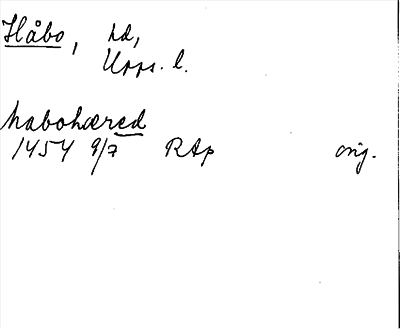 Håbo, hd,
Upps. l.
habohæred
1454 9/7 RAp orig.